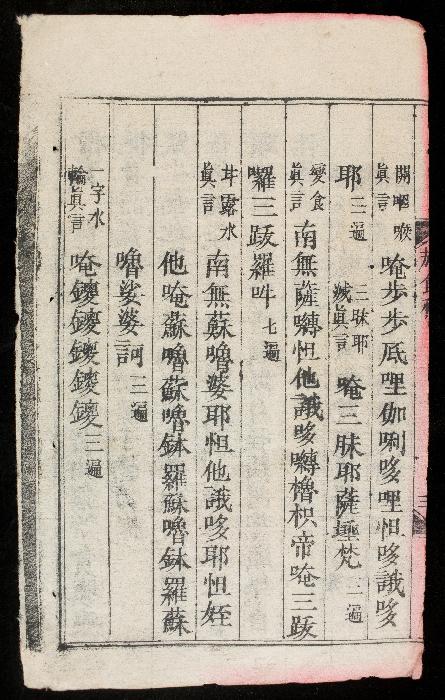 開咽喉真言 唵步步底哩伽唎哆哩怛哆誐哆
耶 三遍 三昧耶滅真言 唵三昧耶薩埵梵 三遍
變食真言 南無薩嚩怛他誐哆嚩櫓枳帝唵三跋
囉三跋囉吽 七遍
甘露水真言 南無蘇嚕婆耶怛他誐哆耶怛姪
他唵蘇嚕蘇嚕鉢羅蘇嚕鉢羅蘇
嚕娑婆訶 三遍
一字水輪真言 唵鑁鑁鑁鑁鑁 三遍